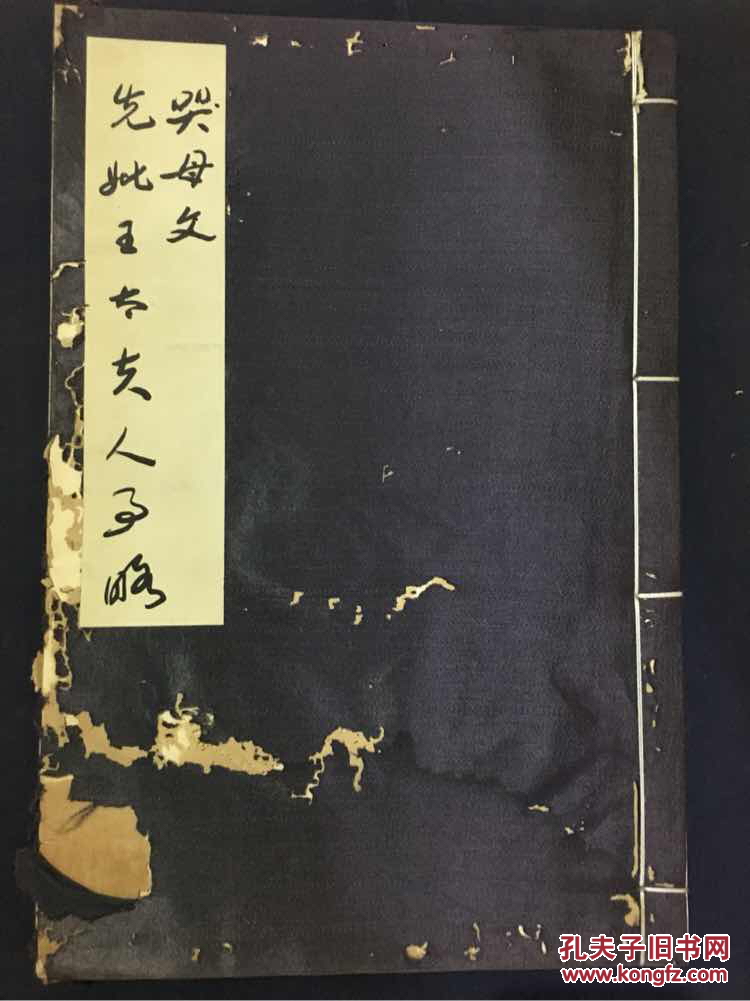 哭母文
先妣王太夫人事略
孔夫子旧书网
www.kongfz.com